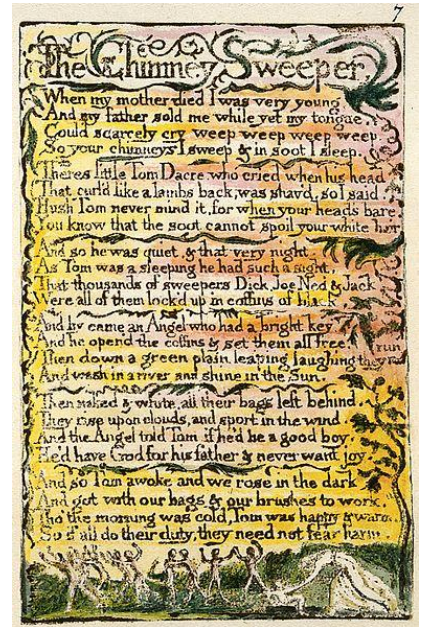 7
The Chimney Sweeper
When my mother died I was very young
And my father sold me while yet my tongue
Could scarcely cry weep weep weep weep.
So your chimneys I sweep & in soot I sleep.
Theres little Tom Dacre who cried when his head
That curl'd like a lambs back, was shav'd, so I said.
Hush Tom never mind it, for when your heads bare
You know that the soot cannot spoil your white hair
And so he was quiet, & that very night.
As Tom was a sleeping he had such a sight,
That thousands of sweepers Dick, Joe Ned & Jack
Were all of them lock'd up in coffins of black
And by came an Angel who had a bright key
And he open'd the coffins & set them all free.
Then down a green plain leaping laughing they run
And wash in a river and shine in the Sun.
Then naked & white, all their bags left behind.
They rise upon clouds, and sport in the wind
And the Angel told Tom if he'd be a good boy,
He'd have God for his father & never want joy
And so Tom awoke and we rose in the dark
And got with our bags & our brushes to work.
Tho' the morning was cold, Tom was happy & warm.
So if all do their duty, they need not fear harm